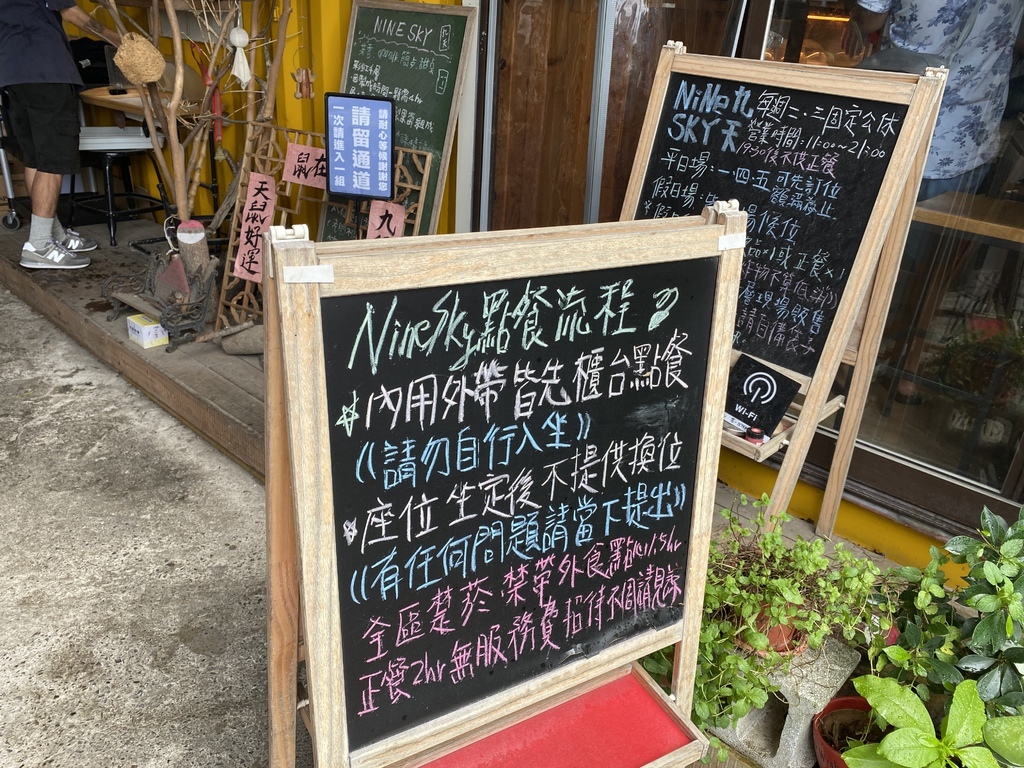 NineSky點餐流程
內用外帶皆先櫃台點餐
((請勿自行入坐))
座位坐定後不提供換位
((有任何問題請當下提出))
全區禁菸.禁帶外食 點心1.5hr
正餐2hr 無服務費 招待不周請見諒
NINE九 每週二.三固定公休
SKY天 營業時間:11:00~21:00
19:30後不供正餐
平日場:一.四.五 可先訂位
額滿為止
假日場:
候位
或正餐×1
現場販售
請自備
WI-FI
NINE SKY
請耐心等候謝謝您
請留通道
一次請進入一組
鼠在
九
天鼠好運